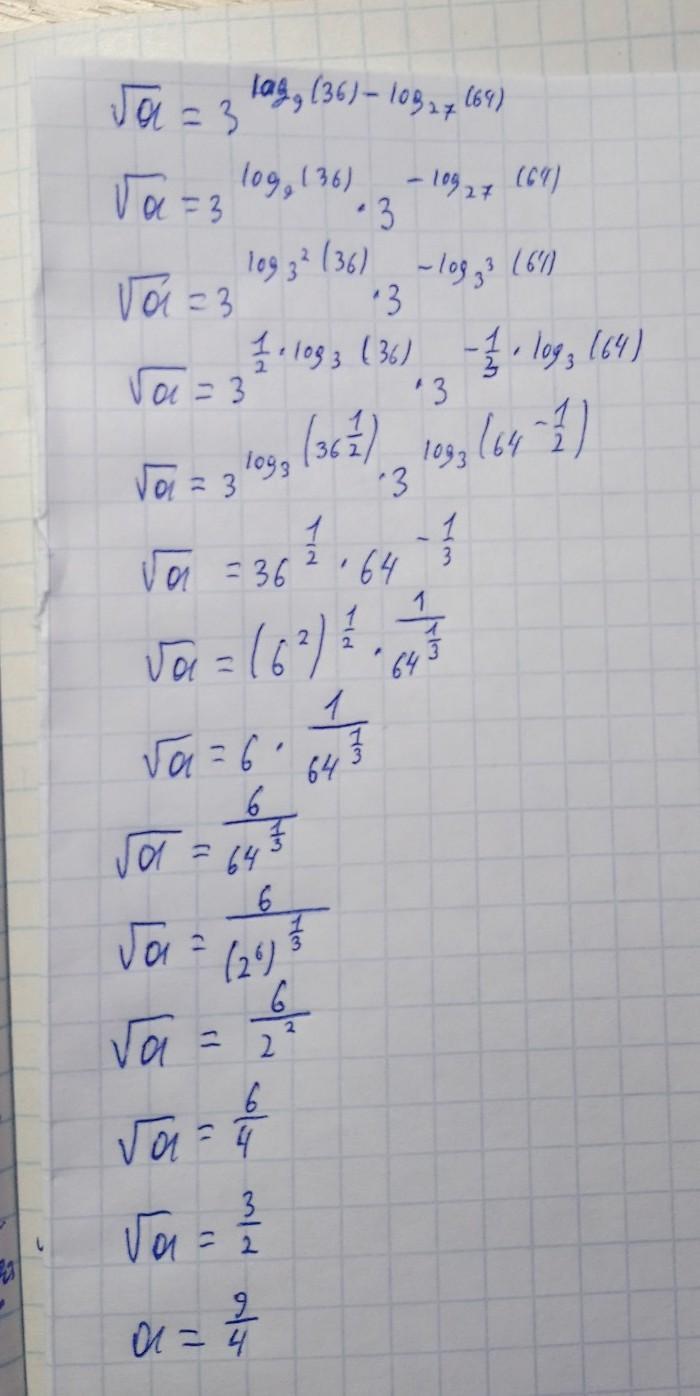 √a = 3^(log₉(36) − log₂₇(64))
√a = 3^(log₉(36)) · 3^(−log₂₇(64))
√a = 3^(log_(3²)(36)) · 3^(−log_(3³)(64))
√a = 3^(1/2 · log₃(36)) · 3^(−1/3 · log₃(64))
√a = 3^(log₃(36^(1/2))) · 3^(log₃(64^(−1/2)))
√a = 36^(1/2) · 64^(−1/3)
√a = (6²)^(1/2) · 1/64^(1/3)
√a = 6 · 1/64^(1/3)
√a = 6/64^(1/3)
√a = 6/(2⁶)^(1/3)
√a = 6/2²
√a = 6/4
√a = 3/2
a = 9/4